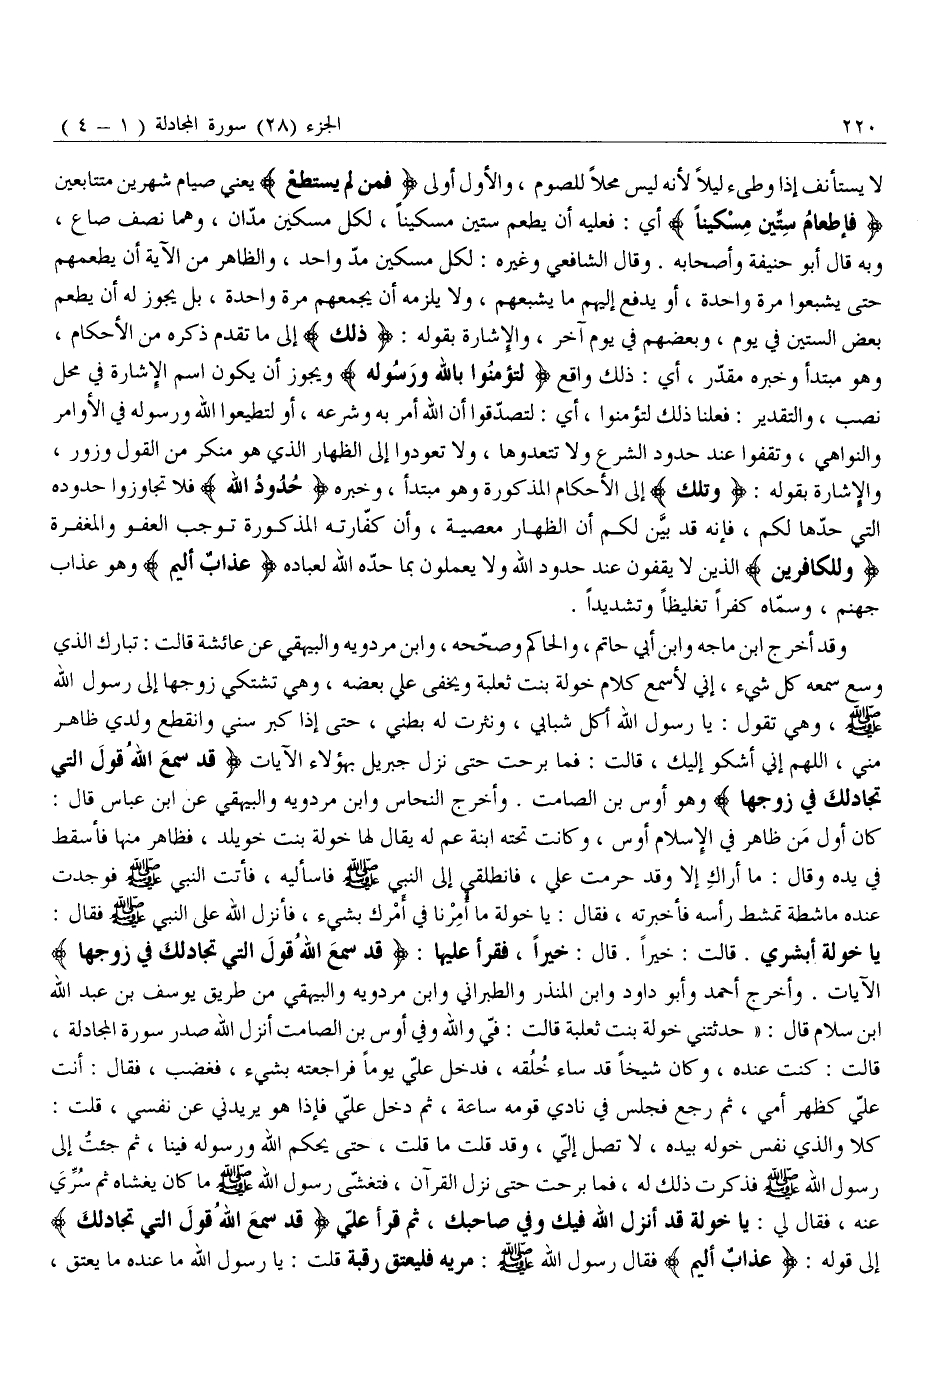 ٢٢٠ الجزء (٢٨) سورة المجادلة ( ١ – ٤ )
لا يستأنف إذا وطىء ليلاً لأنه ليس محلاً للصوم ، والأول أولى ﴿ فمن لم يستطعْ ﴾ يعني صيام شهرين متتابعين
﴿ فإطعامُ سِتِّين مِسْكيناً ﴾ أي : فعليه أن يطعم ستين مسكيناً ، لكل مسكين مدّان ، وهما نصف صاع ،
وبه قال أبو حنيفة وأصحابه . وقال الشافعي وغيره : لكل مسكين مدّ واحد ، والظاهر من الآية أن يطعمهم
حتى يشبعوا مرة واحدة ، أو يدفع إليهم ما يشبعهم ، ولا يلزمه أن يجمعهم مرة واحدة ، بل يجوز له أن يطعم
بعض الستين في يوم ، وبعضهم في يوم آخر ، والإشارة بقوله : ﴿ ذلك ﴾ إلى ما تقدم ذكره من الأحكام ،
وهو مبتدأ وخبره مقدّر ، أي : ذلك واقع ﴿ لتؤمنُوا بالله ورَسُوله ﴾ ويجوز أن يكون اسم الإشارة في محل
نصب ، والتقدير : فعلنا ذلك لتؤمنوا ، أي : لتصدّقوا أن الله أمر به وشرعه ، أو لتطيعوا الله ورسوله في الأوامر
والنواهي ، وتقفوا عند حدود الشرع ولا تتعدوها ، ولا تعودوا إلى الظهار الذي هو منكر من القول وزور ،
والإشارة بقوله : ﴿ وتلك ﴾ إلى الأحكام المذكورة وهو مبتدأ ، وخبره ﴿ حُدُودُ الله ﴾ فلا تجاوزوا حدوده
التي حدّها لكم ، فإنه قد بيَّن لكم أن الظهار معصية ، وأن كفّارته المذكورة توجب العفو والمغفرة
﴿ وللكافرين ﴾ الذين لا يقفون عند حدود الله ولا يعملون بما حدّه الله لعباده ﴿ عذابٌ أليم ﴾ وهو عذاب
جهنم ، وسمّاه كفراً تغليظاً وتشديداً .
وقد أخرج ابن ماجه وابن أبي حاتم ، والحاكم وصحّحه ، وابن مردويه والبيهقي عن عائشة قالت : تبارك الذي
وسع سمعه كل شيء ، إني لأسمع كلام خولة بنت ثعلبة ويخفى علي بعضه ، وهي تشتكي زوجها إلى رسول الله
ﷺ ، وهي تقول : يا رسول الله أكل شبابي ، ونثرت له بطني ، حتى إذا كبر سني وانقطع ولدي ظاهر
مني ، اللهم إني أشكو إليك ، قالت : فما برحت حتى نزل جبريل بهؤلاء الآيات ﴿ قد سمعَ اللهُ قولَ التي
تجادلكَ في زوجها ﴾ وهو أوس بن الصامت . وأخرج النحاس وابن مردويه والبيهقي عن ابن عباس قال :
كان أول مَن ظاهر في الإسلام أوس ، وكانت تحته ابنة عم له يقال لها خولة بنت خويلد ، فظاهر منها فأسقط
في يده وقال : ما أراكِ إلا وقد حرمت علي ، فانطلقي إلى النبي ﷺ فاسأليه ، فأتت النبي ﷺ فوجدت
عنده ماشطة تمشط رأسه فأخبرته ، فقال : يا خولة ما أُمِرْنا في أمْرك بشيء ، فأنزل الله على النبي ﷺ فقال :
يا خولة أبشري . قالت : خيراً . قال : خيراً ، فقرأ عليها : ﴿ قد سمعَ اللهُ قولَ التي تجادلكَ في زوجها ﴾
الآيات . وأخرج أحمد وأبو داود وابن المنذر والطبراني وابن مردويه والبيهقي من طريق يوسف بن عبد الله
ابن سلام قال : « حدثتني خولة بنت ثعلبة قالت : فيّ والله وفي أوس بن الصامت أنزل الله صدر سورة المجادلة ،
قالت : كنت عنده ، وكان شيخاً قد ساء خُلُقه ، فدخل عليّ يوماً فراجعته بشيء ، فغضب ، فقال : أنت
عليّ كظهر أمي ، ثم رجع فجلس في نادي قومه ساعة ، ثم دخل عليّ فإذا هو يريدني عن نفسي ، قلت :
كلا والذي نفس خوله بيده ، لا تصل إليّ ، وقد قلت ما قلت ، حتى يحكم الله ورسوله فينا ، ثم جئتُ إلى
رسول الله ﷺ فذكرت ذلك له ، فما برحت حتى نزل القرآن ، فتغشّى رسول الله ﷺ ما كان يغشاه ثم سُرِّيَ
عنه ، فقال لي : يا خولة قد أنزل الله فيك وفي صاحبك ، ثم قرأ عليّ ﴿ قد سمعَ اللهُ قولَ التي تجادلكَ ﴾
إلى قوله : ﴿ عذابٌ أليم ﴾ فقال رسول الله ﷺ : مريه فليعتق رقبة قلت : يا رسول الله ما عنده ما يعتق ،